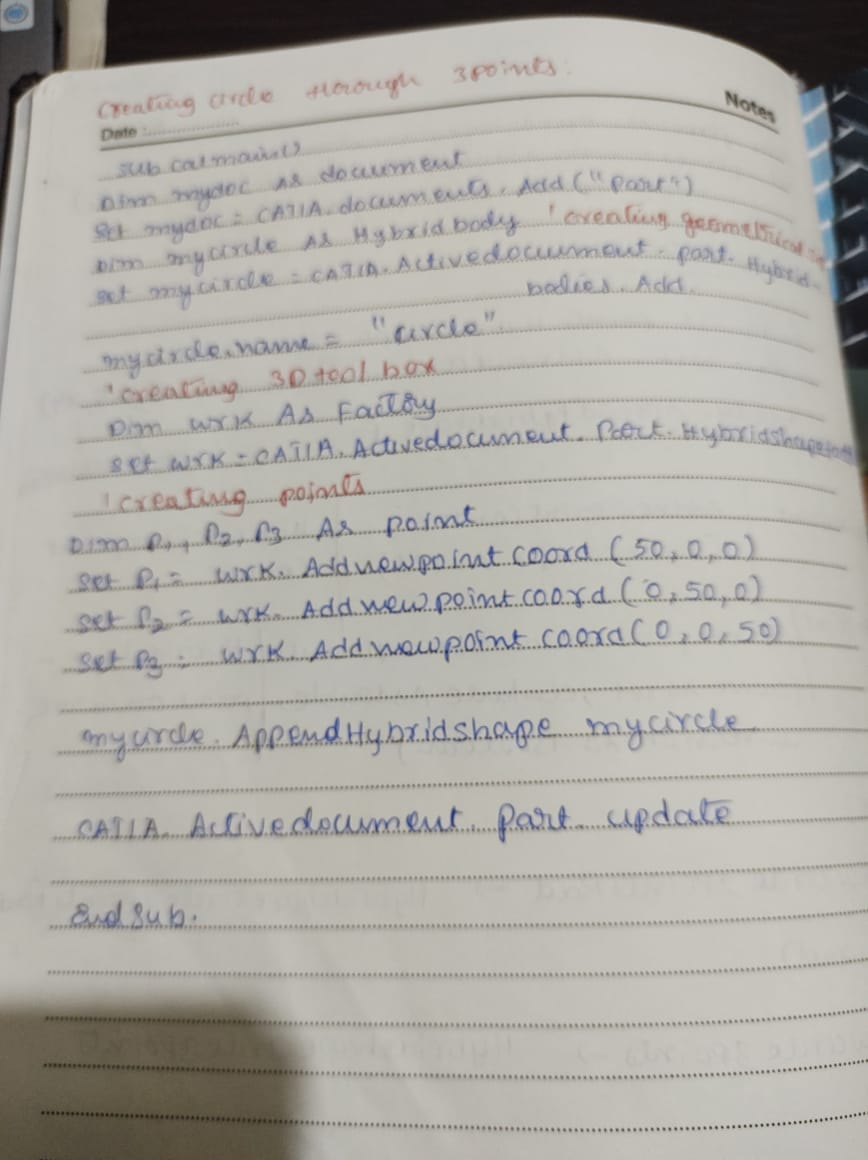 Creating circle through 3points:
Notes
Date :
Sub catmain()
Dim mydoc As document
Set mydoc = CATIA.documents. Add ("Part")
Dim mycircle As Hybridbody 'creating geometrical
Set mycircle = CATIA. Activedocument. part. Hybrid-
bodies. Add.
mycircle.name = "circle"
'creating 3D tool box
Dim wrk As Factory
Set wrk = CATIA. Activedocument. Part.
'creating points
Dim P1, P2, P3 As point
Set P1 = wrk. Addnewpointcoord (50,0,0)
Set P2 = wrk. Addnewpointcoord (0,50,0)
Set P3 = wrk. Addnewpointcoord (0,0,50)
mycircle. AppendHybridshape mycircle
CATIA. Activedocument. Part. update
End sub.